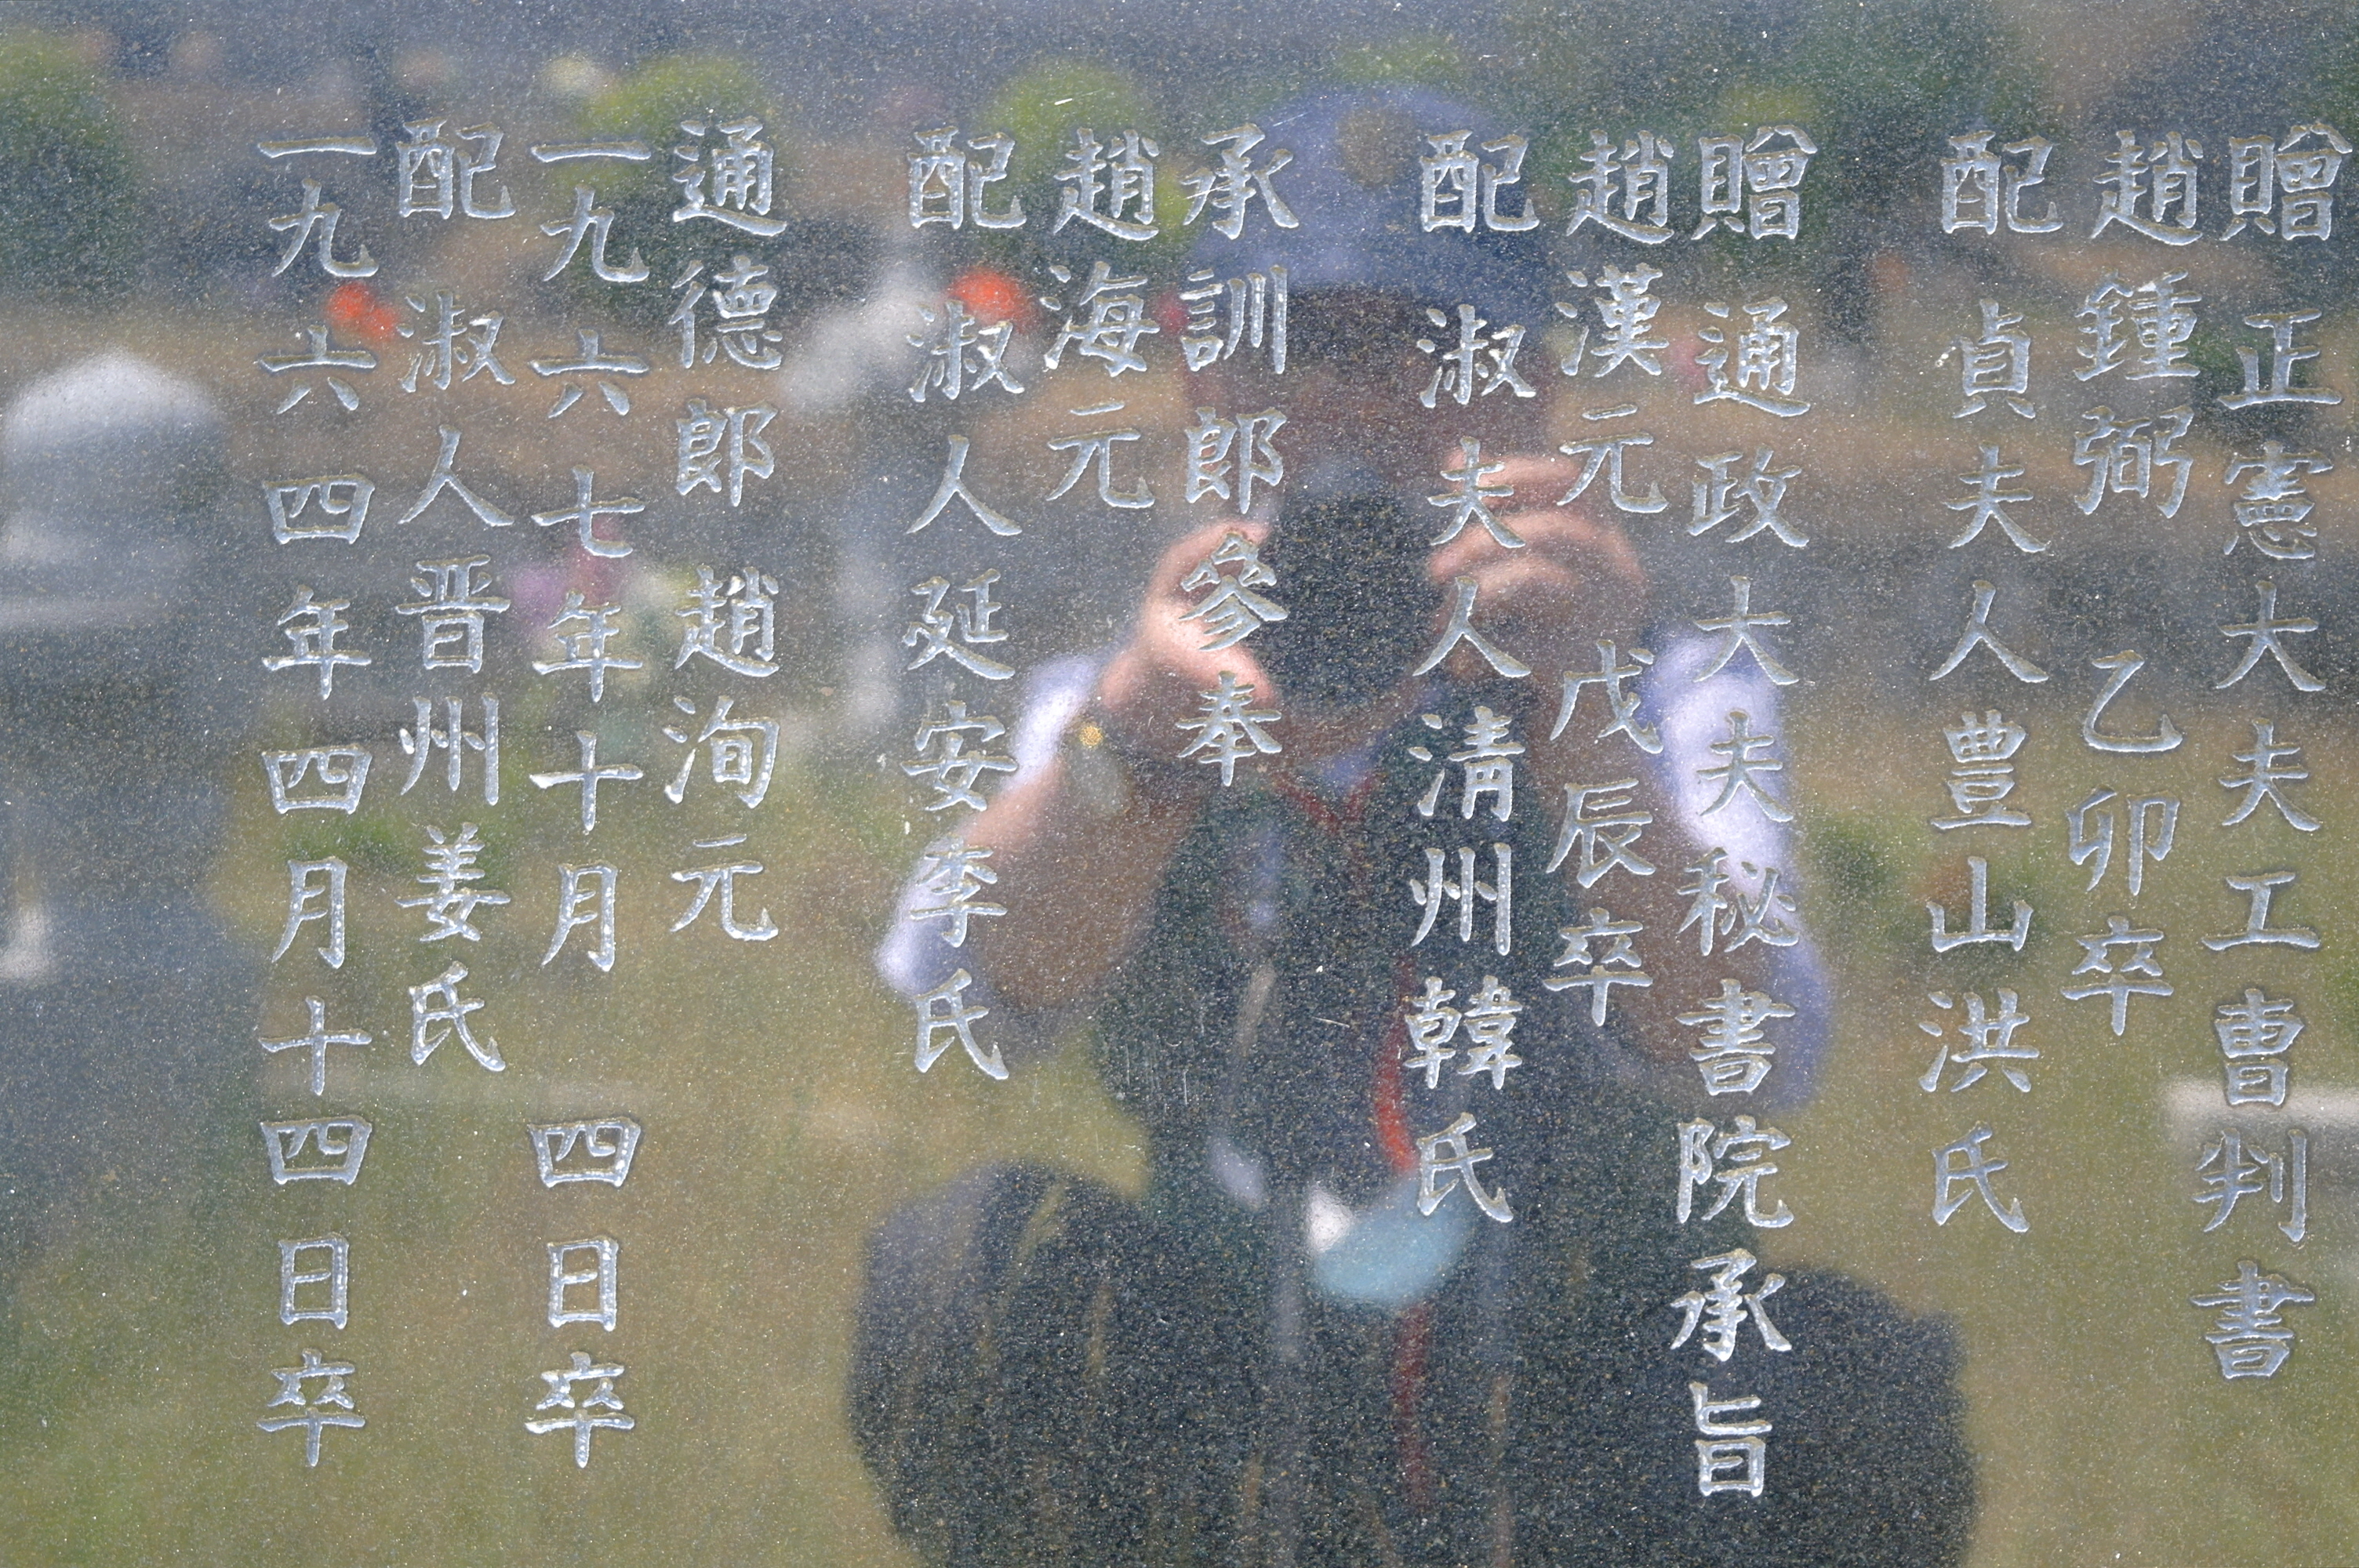 贈正憲大夫工曹判書
趙鍾弼 乙卯卒
配 貞夫人豊山洪氏
贈通政大夫秘書院承旨
趙漢元 戊辰卒
配 淑夫人清州韓氏
承訓郎參奉
趙海元
配 淑人延安李氏
通德郎 趙洵元
一九六七年十月 四日卒
配 淑人晋州姜氏
一九六四年四月十四日卒